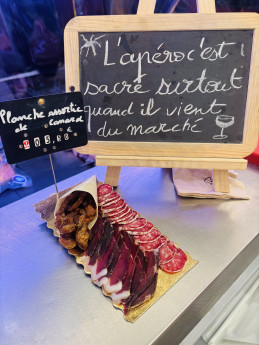 L'apéro c'est
sacré surtout
quand il vient
du marché
Planche assortie
de canard